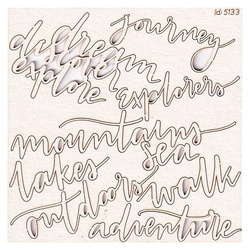 Id: 5133
journey
dream
explore
Explorers
mountains
sea
lakes
walk
outdoors
adventure